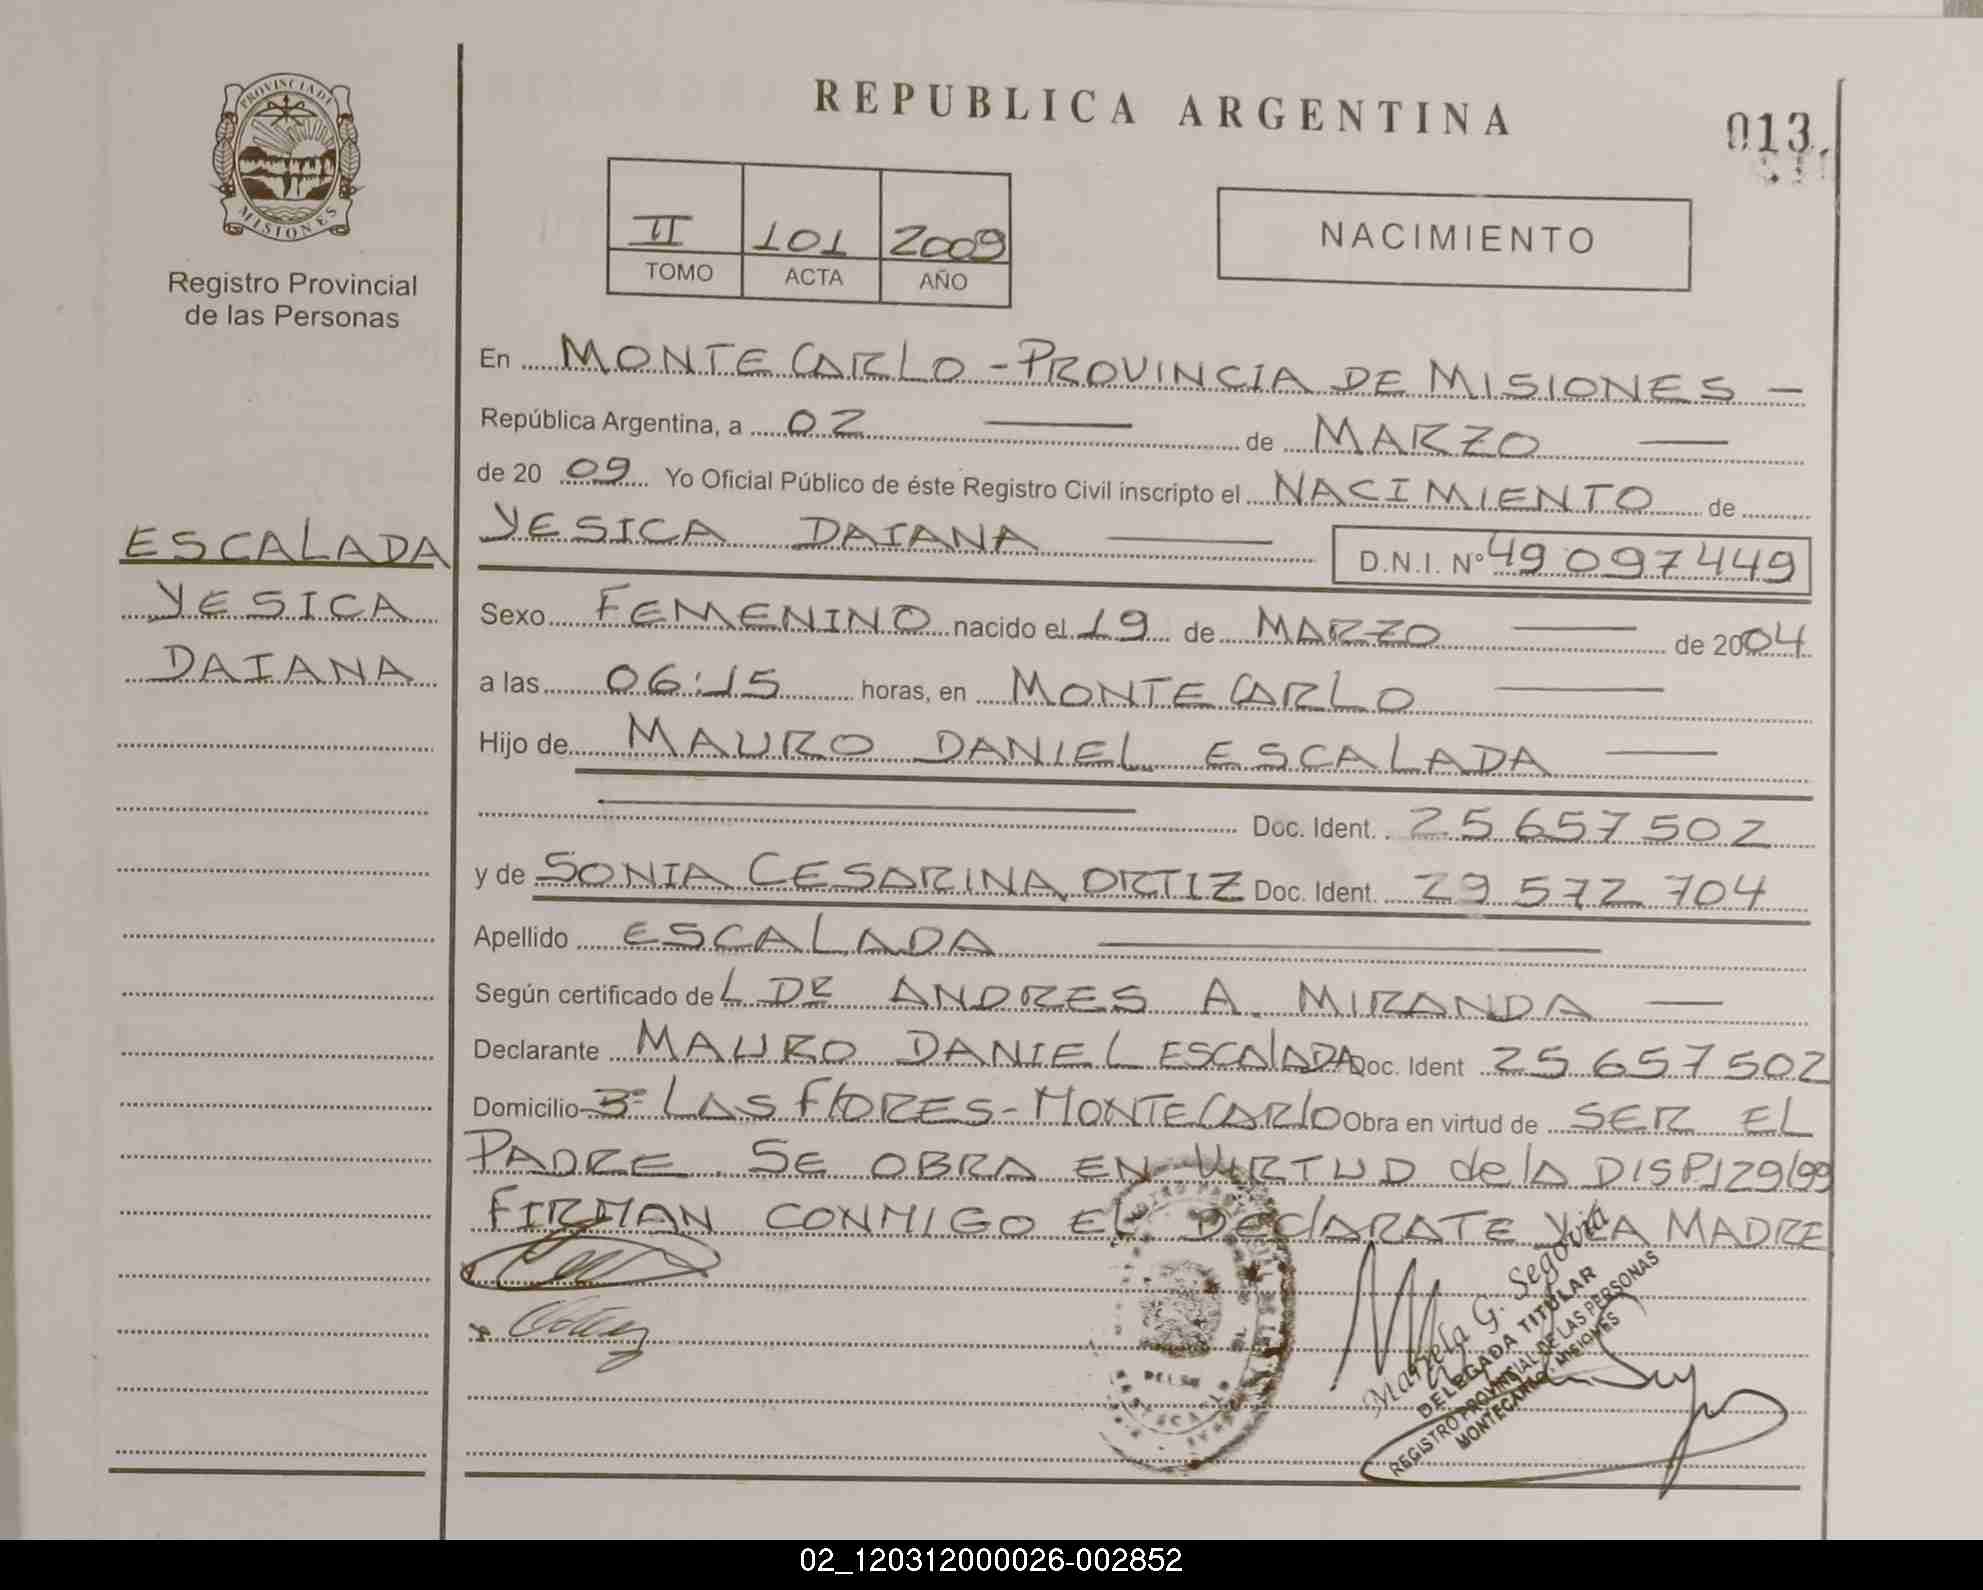 PROVINCIA DE
MISIONES
Registro Provincial
de las Personas
ESCALADA
YESICA
DAIANA
REPUBLICA ARGENTINA
013
II 101 2009
TOMO ACTA AÑO
NACIMIENTO
En MONTECARLO - PROVINCIA DE MISIONES -
República Argentina, a 02 — de MARZO —
de 20 09 Yo Oficial Público de éste Registro Civil inscripto el NACIMIENTO de
YESICA DAIANA — D.N.I. Nº 49 097 449
Sexo FEMENINO nacido el 19 de MARZO — de 2004
a las 06:15 horas, en MONTECARLO —
Hijo de MAURO DANIEL ESCALADA —
— Doc. Ident. 25 657 502
y de SONIA CESARINA ORTIZ Doc. Ident. 29 572 704
Apellido ESCALADA —
Según certificado de L DR ANDRES A. MIRANDA —
Declarante MAURO DANIEL ESCALADA Doc. Ident 25 657 502
Domicilio Bº LAS FLORES - MONTECARLO Obra en virtud de SER EL
PADRE. SE OBRA EN VIRTUD de lA DISP.129/99
FIRMAN CONMIGO EL DEClARATE Y LA MADRE
Mariela G. Segovia
DELEGADA TITULAR
REGISTRO PROVINCIAL DE LAS PERSONAS
MONTECARLO - MISIONES
02_120312000026-002852